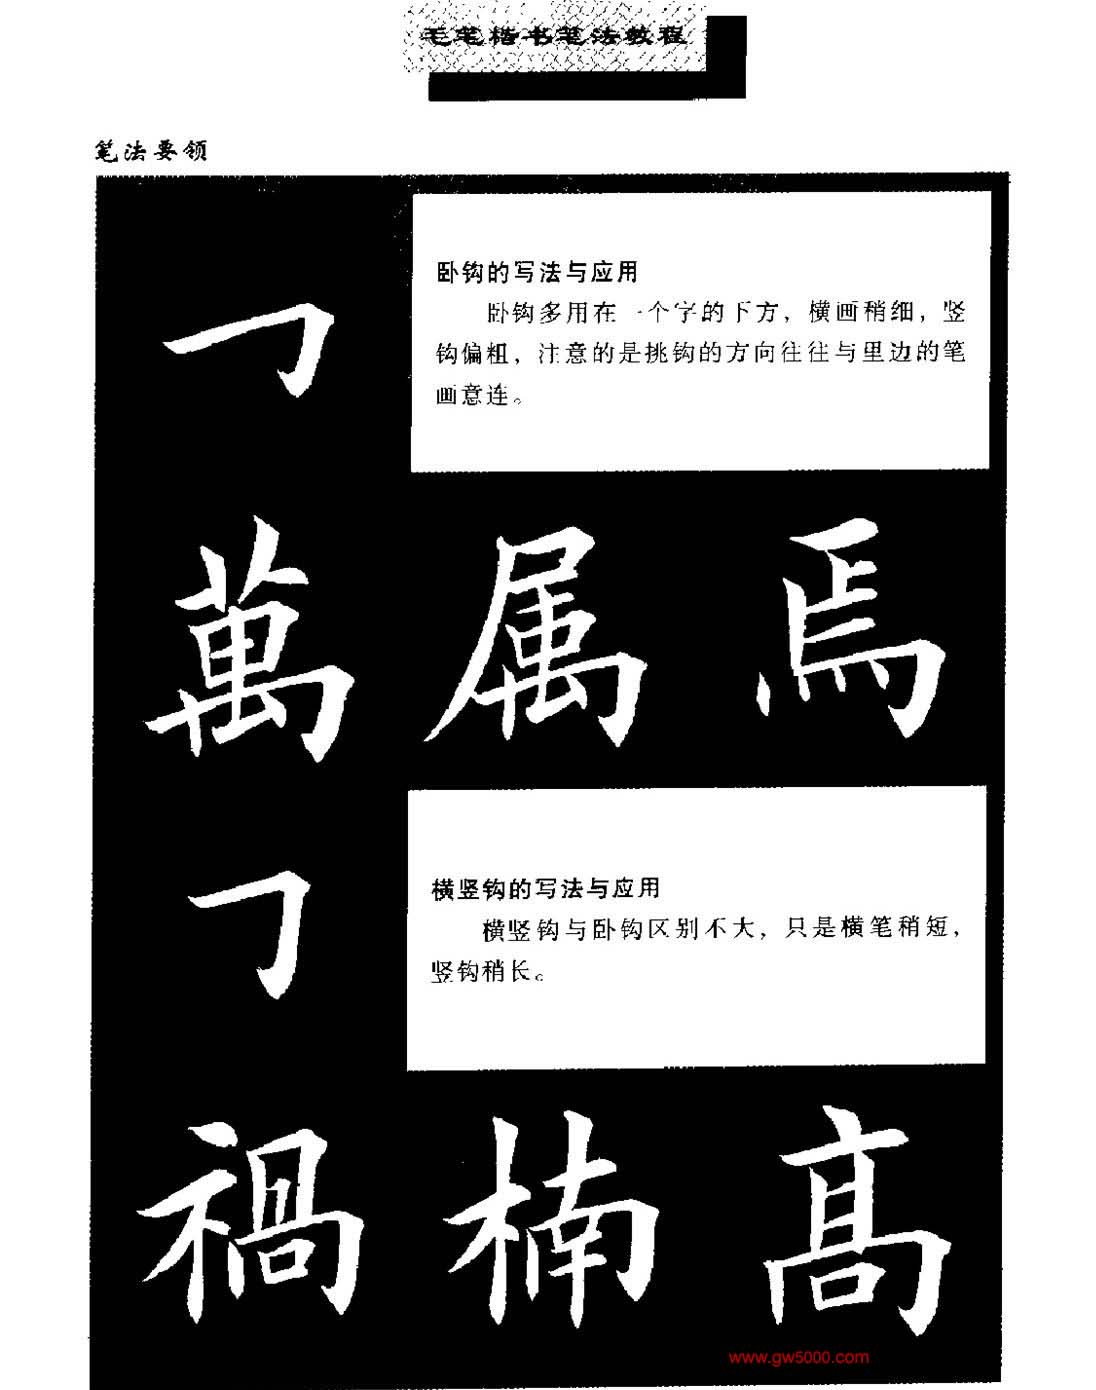 毛笔楷书笔法教程
笔法要领
卧钩的写法与应用
卧钩多用在一个字的下方，横画稍细，竖
钩偏粗，注意的是挑钩的方向往往与里边的笔
画意连。
萬 属 焉
横竖钩的写法与应用
横竖钩与卧钩区别不大，只是横笔稍短，
竖钩稍长。
禍 楠 髙
www.gw5000.com